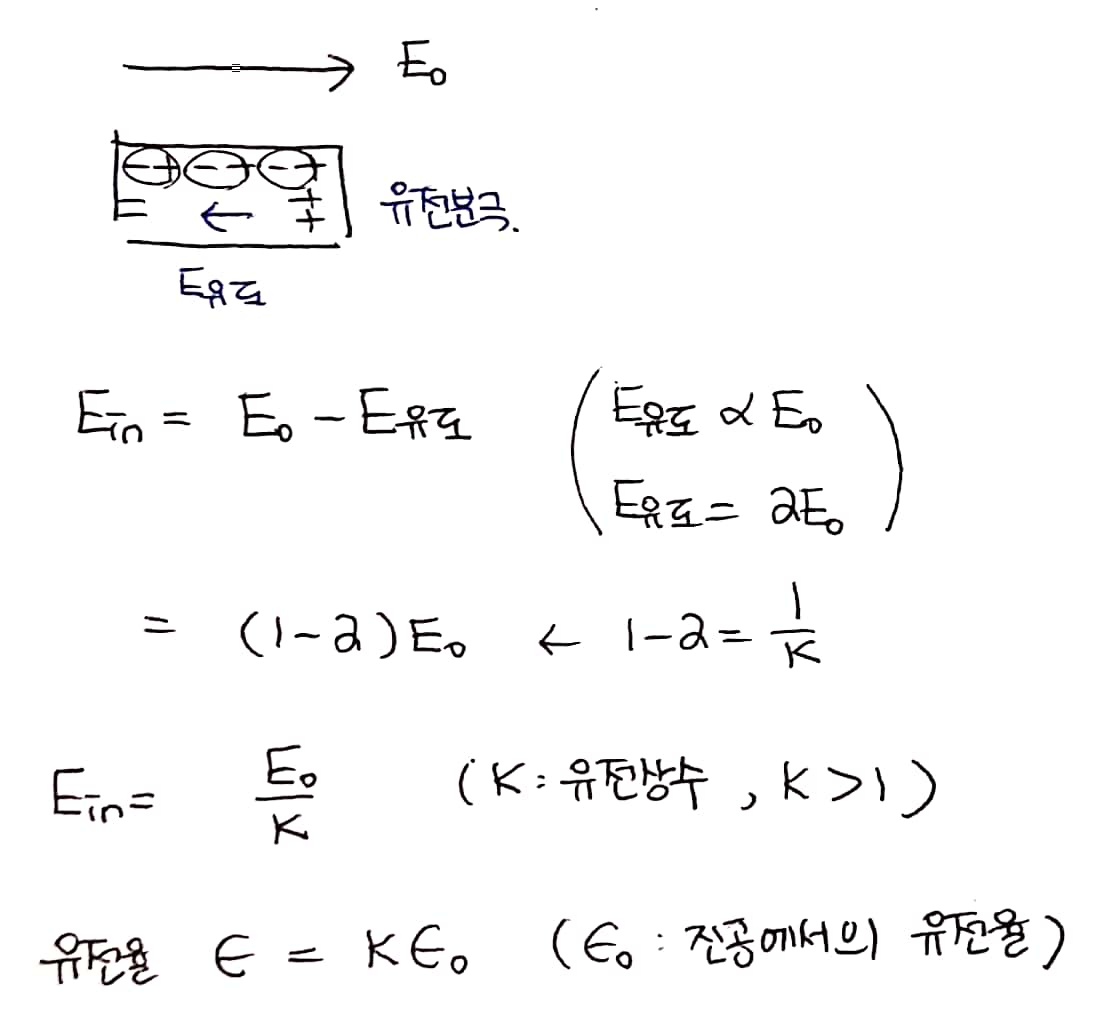 E₀
유전분극.
E유도
E in = E₀ - E유도 ( E유도 ∝ E₀
E유도 = aE₀ )
= (1-a)E₀ ← 1-a = 1/K
E in = E₀/K (K : 유전상수, K > 1)
유전율 ϵ = Kϵ₀ (ϵ₀ : 진공에서의 유전율)